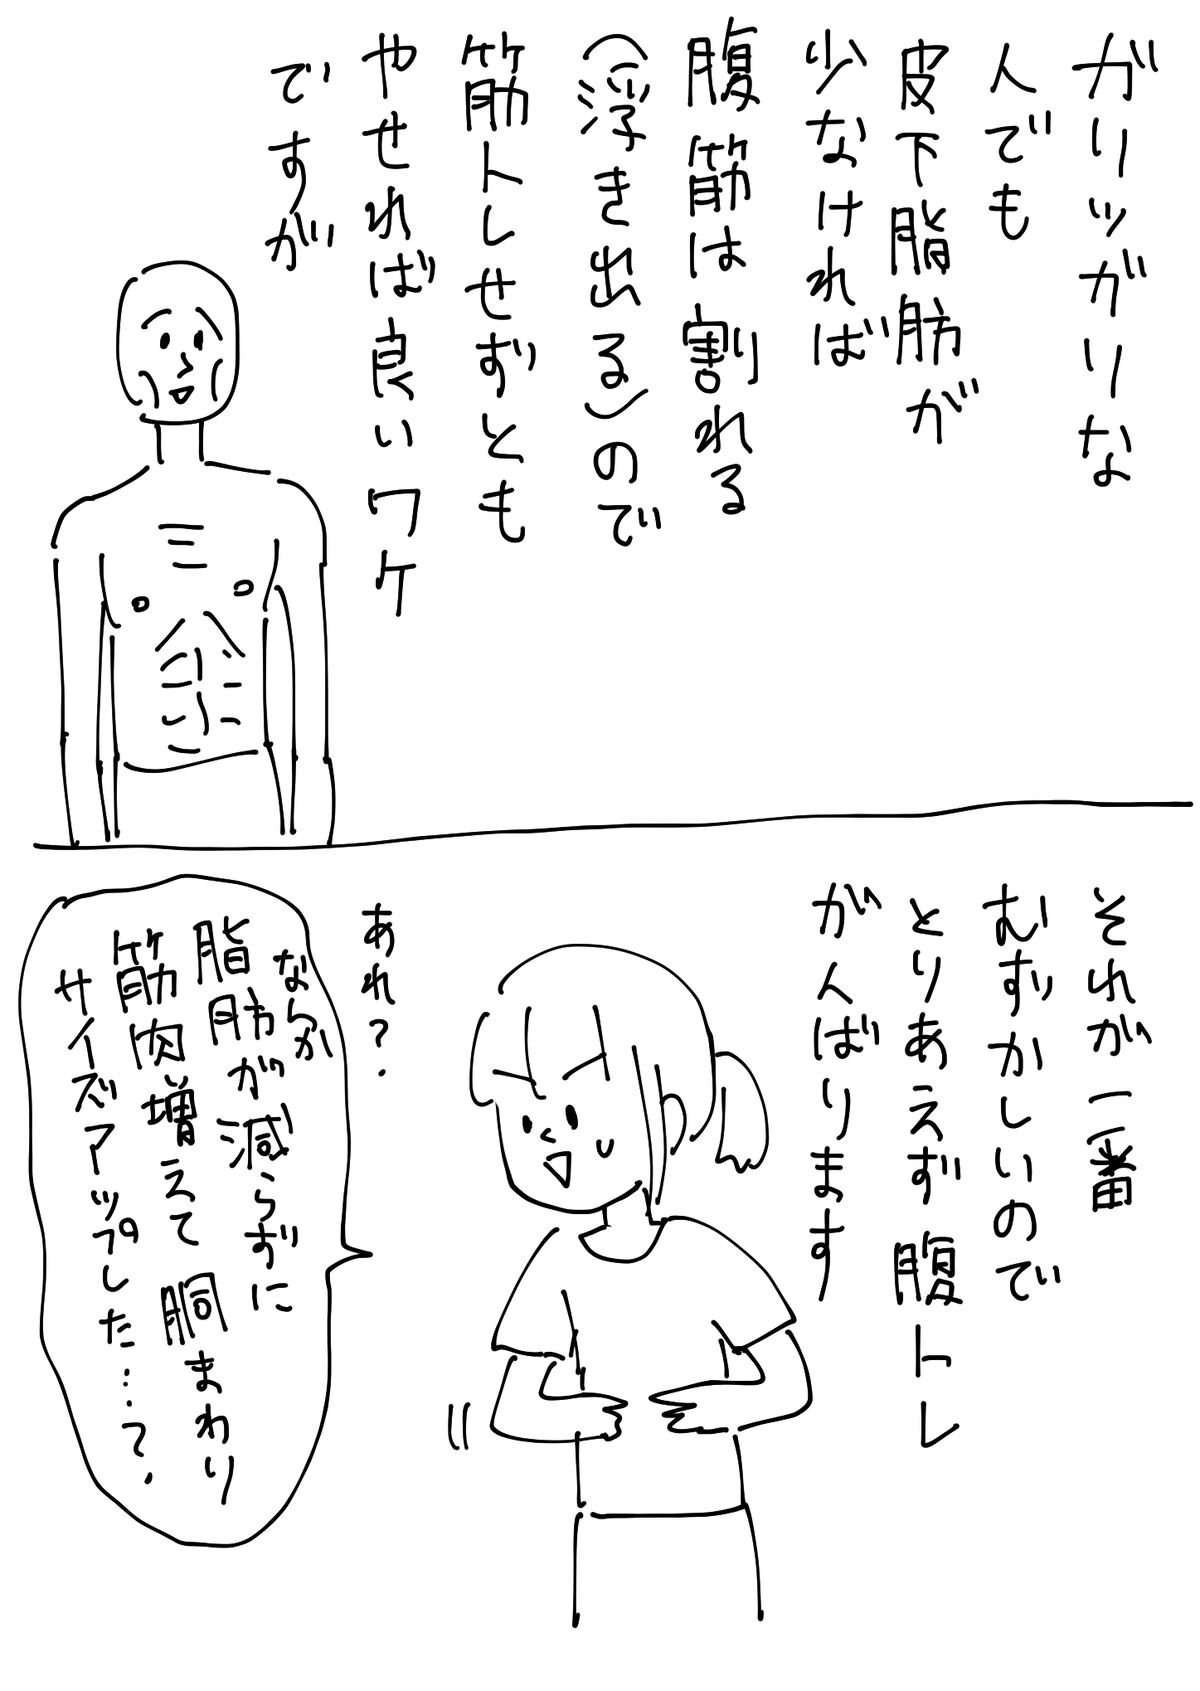 ガリッガリな
人でも
皮下脂肪が
少なければ
腹筋は割れる
（浮き出る）ので
筋トレせずとも
やせれば良いワケ
ですが
それが一番
むずかしいので
とりあえず腹トレ
がんばります
あれ？
なんか
脂肪が減らずに
筋肉増えて胴まわり
サイズアップした…？